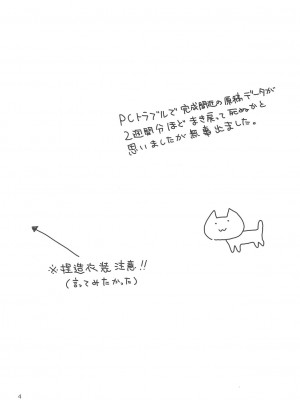 PCトラブルで完成間近の原稿データが
2週間分ほどまき戻って死ぬかと
思いましたが無事出ました。
※捏造衣装注意!!
(言ってみたかった)
4